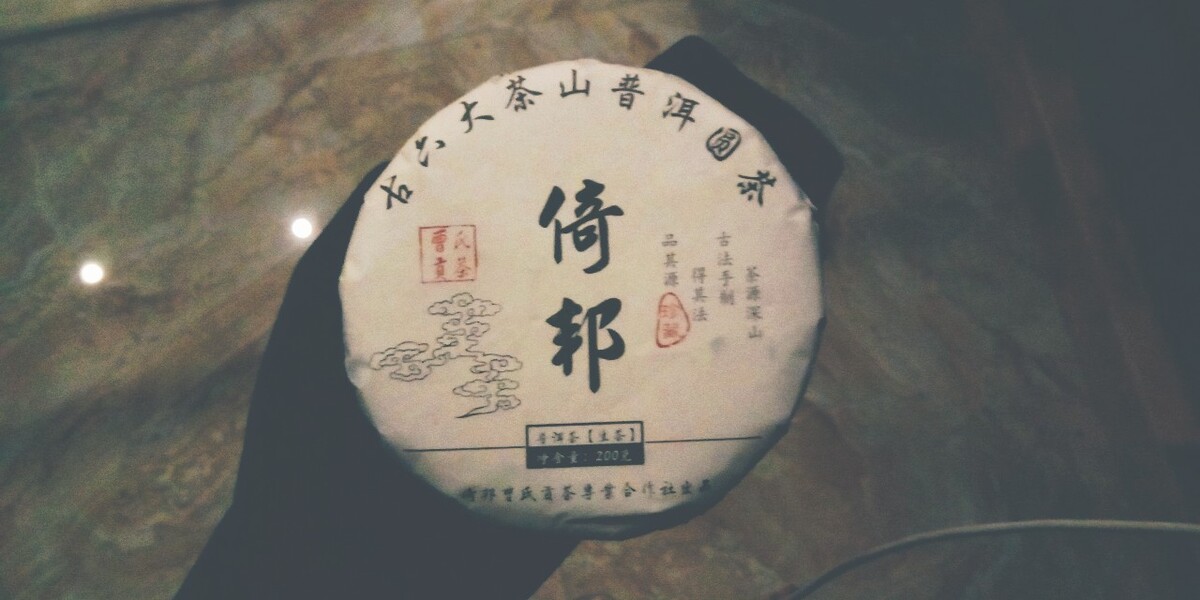 古六大茶山普洱圆茶
倚邦
曹氏
貢茶
茶源深山
古法手制
得其法
品其源
珍藏
普洱茶【生茶】
净含量：200克
倚邦曹氏貢茶專業合作社出品